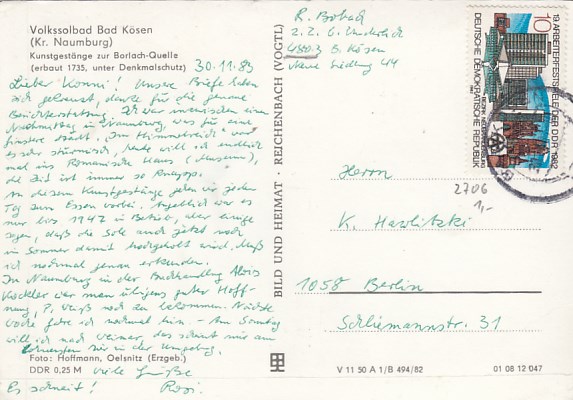 Volkssolbad Bad Kösen
(Kr. Naumburg)
Kunstgestänge zur Borlach-Quelle
(erbaut 1735, unter Denkmalschutz)
30.11.89
Lieber Konni! Unsere Briefe haben
sich gekreuzt, danke für die genaue
Berichterstattung. Ich war inzwischen einen
Nachmittag in Naumburg, was für eine
finstere Stadt. "Im Himmelreich" war
es sehr stürmisch, heute will ich endlich
mal ins Romanische Haus (Museum),
die Zeit ist immer so knapp.
An diesem Kunstgestänge gehen wir jeden
Tag zum Essen vorbei. Angeblich war es
nur bis 1942 in Betrieb, aber einige
sagen, daß die Sole auch jetzt noch
im Sommer damit hochgeholt wird, muß
ich nochmal genau erkunden.
In Naumburg in der Buchhandlung Alois
war man übrigens guter Hoff-
nung, noch zu bekommen. Nächste
Woche fahre ich nochmal hin - Am Sonntag
will ich nach Weimar, das scheint mir am
in der Umgebung.
Foto: Hoffmann, Oelsnitz (Erzgeb.)
DDR 0,25 M
Viele Grüße
Es schneit! Rosi.
BILD UND HEIMAT · REICHENBACH (VOGTL)
R. Bobach
z. Z. G.
4803 B. Kösen
Neue Siedlung 44
10
19. ARBEITERFESTSPIELE DER DDR 1982
DEUTSCHE DEMOKRATISCHE REPUBLIK
Herrn
2706
1,-
K. Hawlitzki
1058 Berlin
Schliemannstr. 31
V 11 50 A 1/B 494/82
01 08 12 047